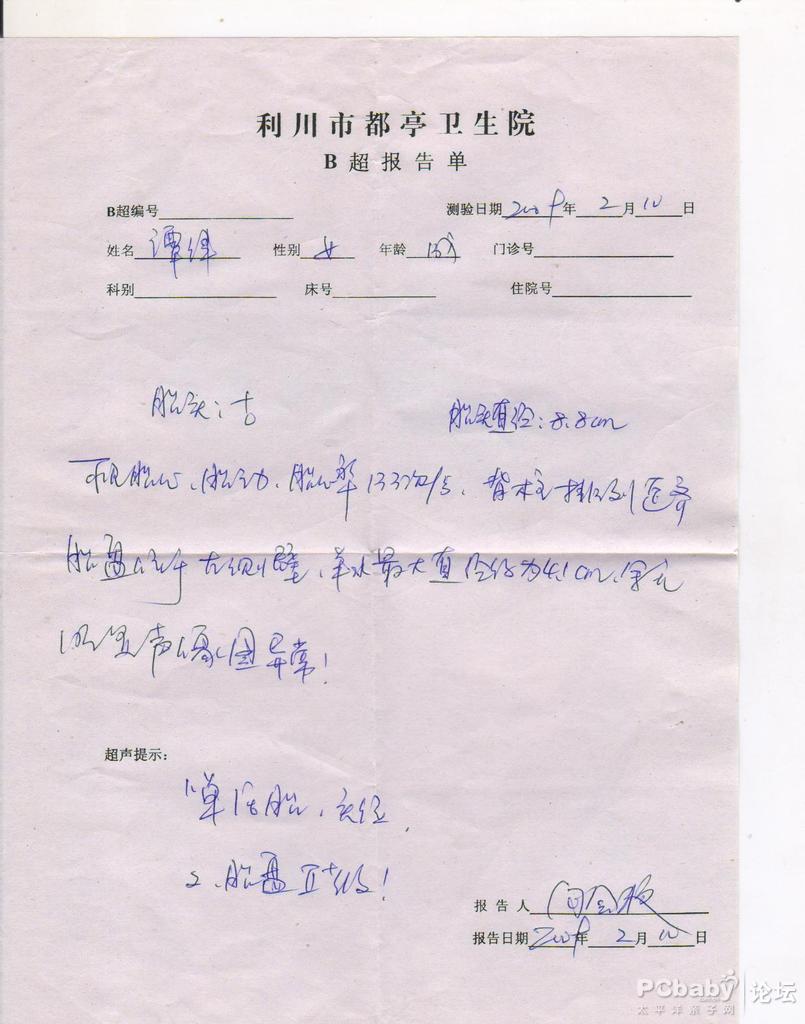 利川市都亭卫生院
B超报告单
B超编号 测验日期 2009年 2月 10日
姓名 谭 性别 女 年龄 门诊号
科别 床号 住院号
胎头:古 胎头直径:8.8cm
可见胎心、胎动、胎心率133次/分、脊柱排列整齐
胎盘位于右侧壁、羊水最大直径约为4.1cm、余无
明显声像图异常!
超声提示:
1、单活胎、头位
2、胎盘Ⅱ+级!
报告人
报告日期 2009年 2月 10日
PCbaby 论坛
太平洋亲子网